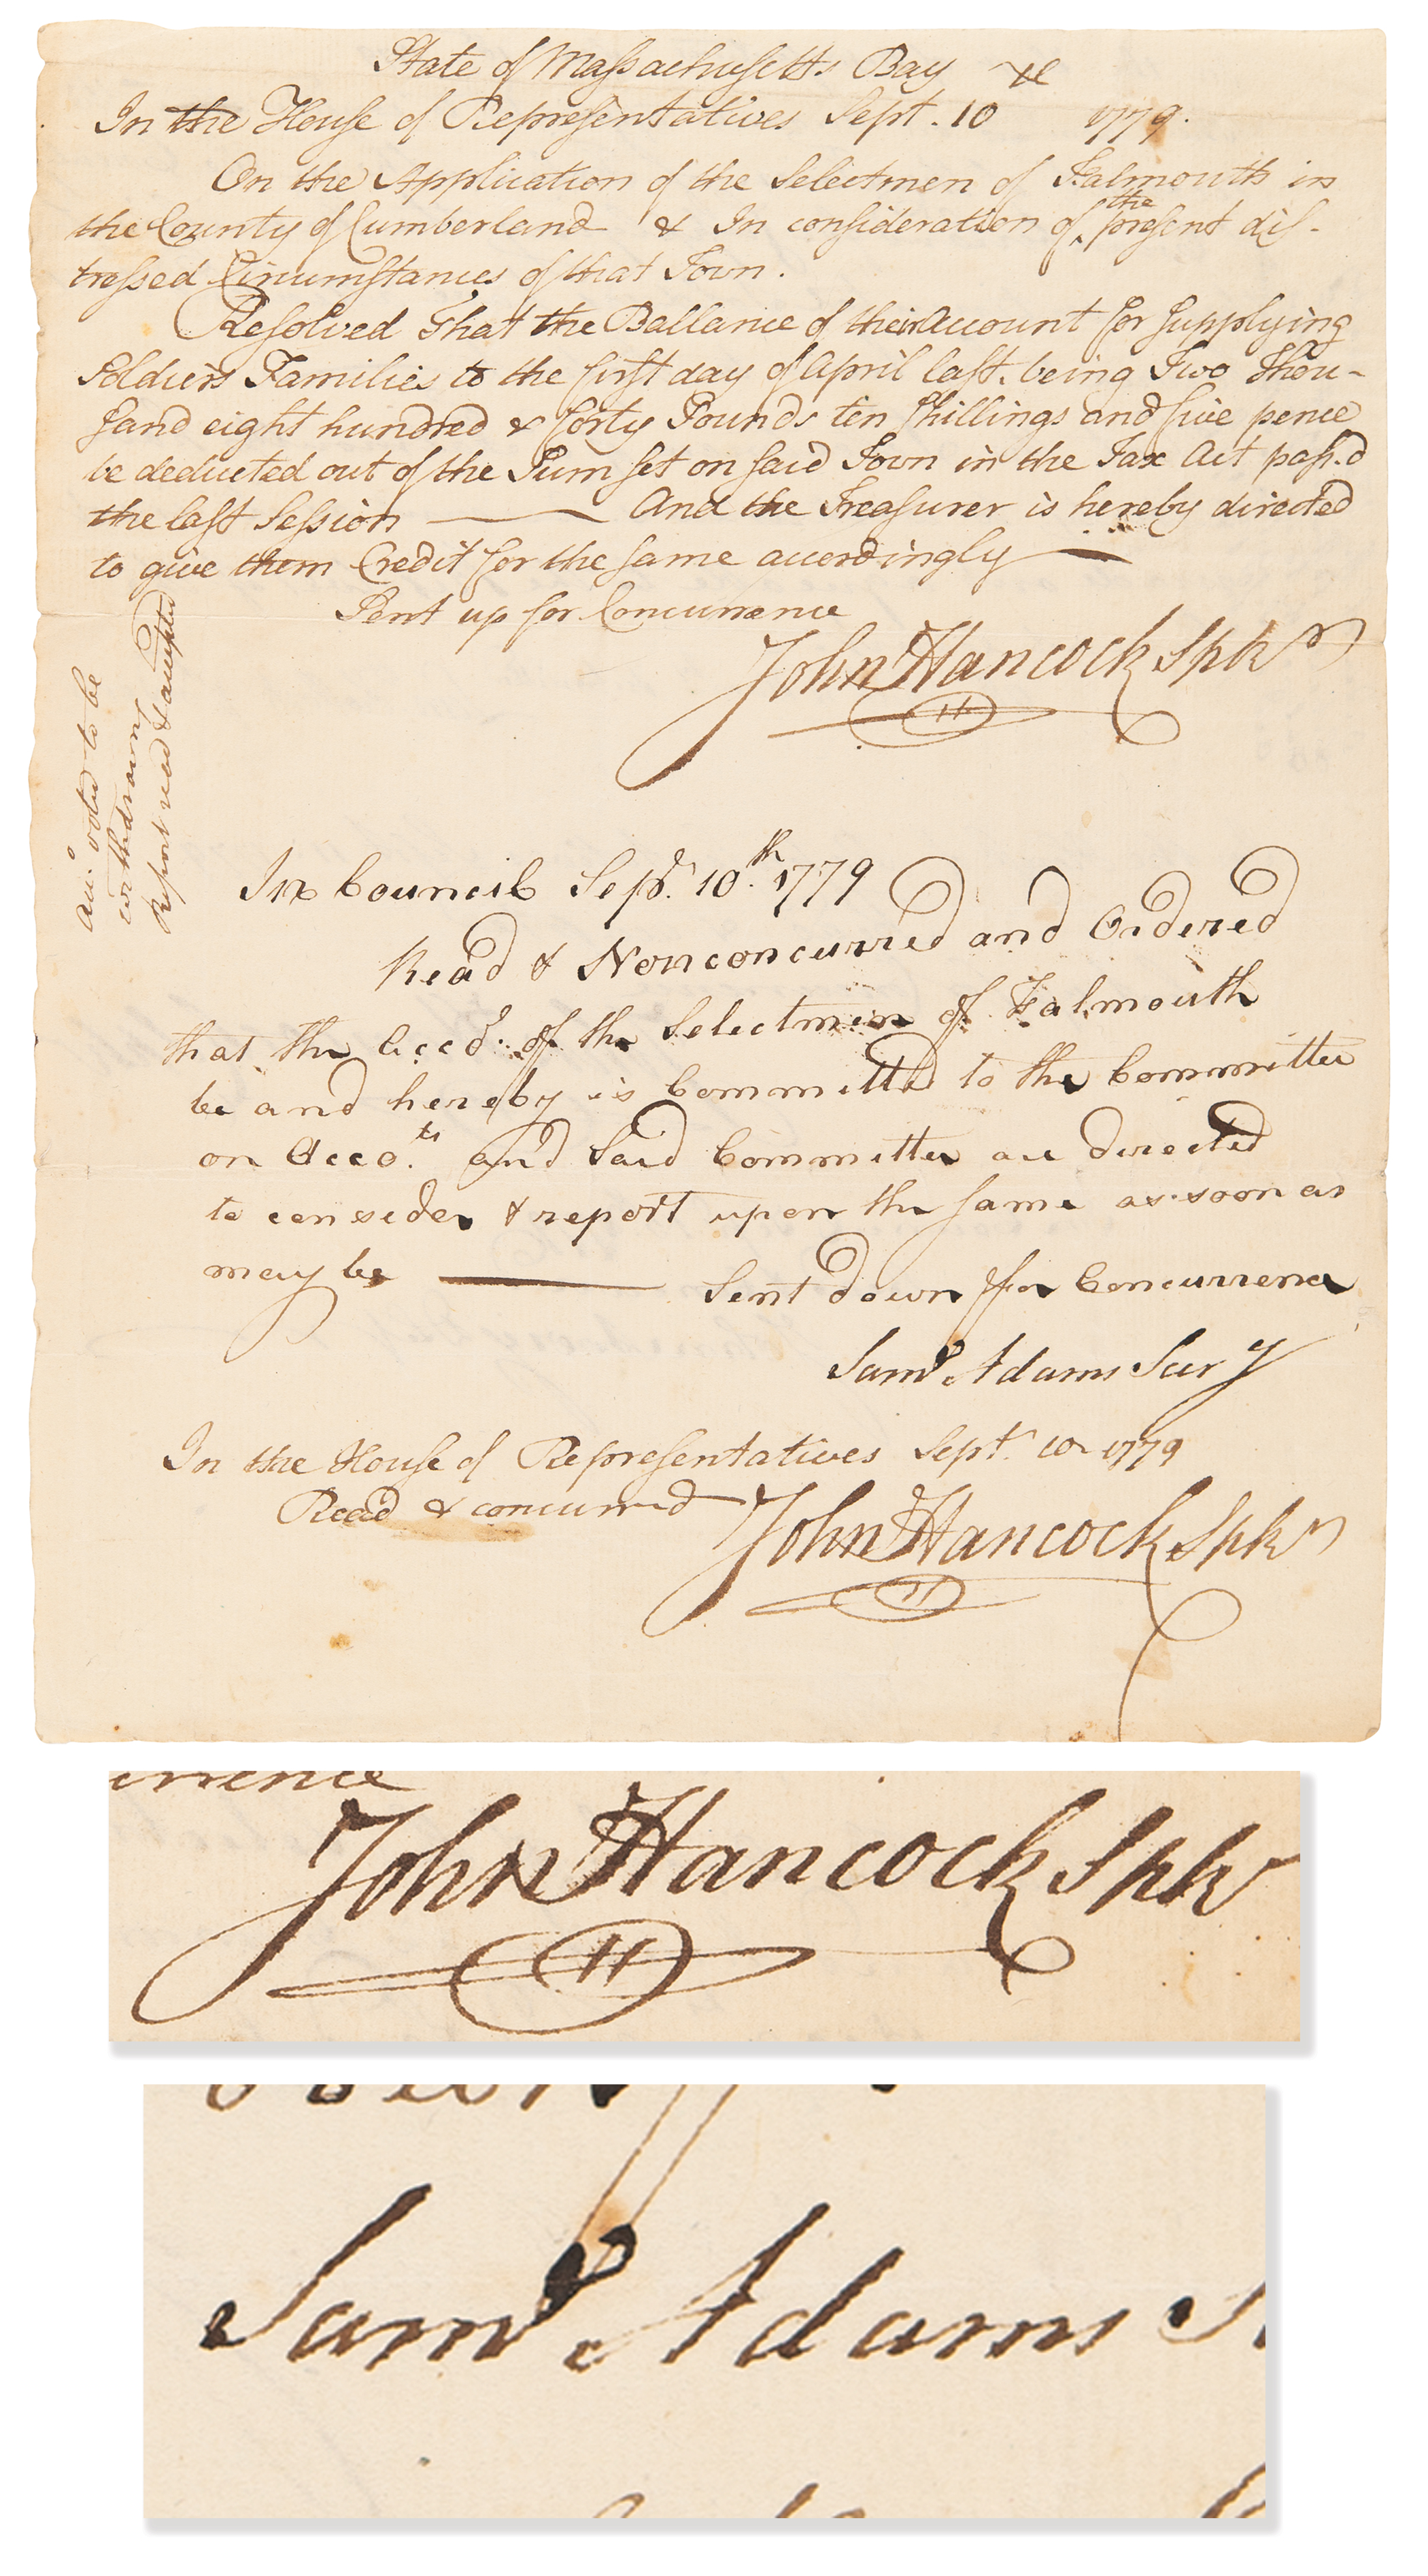 State of Massachusetts Bay
In the House of Representatives Sept. 10 1779.
On the Application of the Selectmen of Falmouth in
the County of Cumberland & In consideration of the present dis-
tressed Circumstances of that Town.
Resolved That the Ballance of their Account for supplying
Soldiers Families to the first day of April last. being Two Thou-
sand eight hundred & forty Pounds ten shillings and five pence
be deducted out of the Sum set on said Town in the Tax Act pass.d
the last Session — And the Treasurer is hereby directed
to give them Credit for the same accordingly —
Sent up for Concurrence
John Hancock Spkr
voted to be
withdrawn
Report read & accepted
In Council Sepr. 10th. 1779
Read & Nonconcurred and Ordered
that the Accot. of the Selectmen of Falmouth
be and hereby is Committed to the Committee
on Acco.ts and Said Committee are directed
to consider & report upon the same as soon as
may be — Sent down for Concurrence
Saml Adams Secry
In the House of Representatives Sept. 10 1779
Read & concurred
John Hancock Spkr
urrence
John Hancock Spkr
Saml Adams S